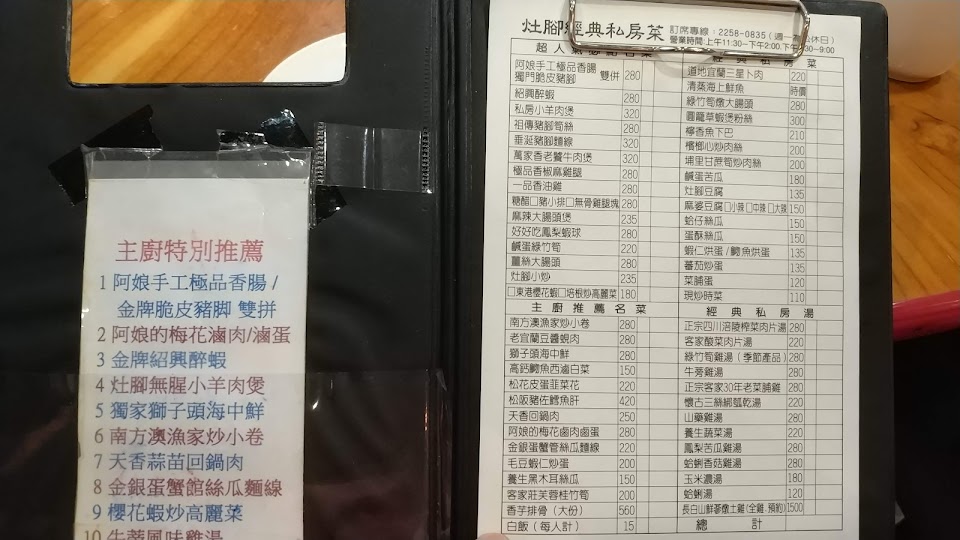 主廚特別推薦
1 阿娘手工極品香腸 /
金牌脆皮豬脚 雙拼
2 阿娘的梅花滷肉/滷蛋
3 金牌紹興醉蝦
4 灶腳無腥小羊肉煲
5 獨家獅子頭海中鮮
6 南方澳漁家炒小卷
7 天香蒜苗回鍋肉
8 金銀蛋蟹館絲瓜麵線
9 櫻花蝦炒高麗菜
灶腳經典私房菜
訂席專線：2258-0835
營業時間:上午11:30－下午2:00.
阿娘手工極品香腸
獨門脆皮豬腳 雙併 280
紹興醉蝦 280
私房小羊肉煲 320
祖傳豬腳筍絲 280
垂涎豬腳麵線 320
萬家香老饕牛肉煲 320
極品香椒麻雞腿 280
一品香油雞 280
糖醋□豬小排□無骨雞腿塊 280
麻辣大腸頭煲 235
好好吃鳳梨蝦球 280
鹹蛋綠竹筍 220
薑絲大腸頭 280
灶腳小炒 235
□東港櫻花蝦□培根炒高麗菜 180
主廚推薦名菜
南方澳漁家炒小卷 280
老宜蘭豆醬蜆肉 280
獅子頭海中鮮 280
高鈣鯛魚西滷白菜 150
松花皮蛋韮菜花 220
松阪豬佐鱈魚肝 420
天香回鍋肉 250
阿娘的梅花鹵肉鹵蛋 280
金銀蛋蟹管絲瓜麵線 220
毛豆蝦仁炒蛋 200
養生黑木耳絲瓜 150
客家莊芙蓉桂竹筍 200
香芋排骨（大份） 560
白飯（每人計） 15
經典私房菜
道地宜蘭三星卜肉 220
清蒸海上鮮魚 時價
綠竹筍燉大腸頭 280
圓籠草蝦煲粉絲 300
檸香魚下巴 210
檳榔心炒肉絲 200
埔里甘蔗筍炒肉絲 200
鹹蛋苦瓜 180
灶腳豆腐 135
麻婆豆腐□小辣□中辣□大辣 150
蛤仔絲瓜 150
蛋酥絲瓜 150
蝦仁烘蛋/鯛魚烘蛋 135
蕃茄炒蛋 135
菜脯蛋 120
現炒時菜 110
經典私房湯
正宗四川涪陵榨菜肉片湯 280
客家酸菜肉片湯 220
綠竹筍雞湯（季節產品） 280
牛蒡雞湯 280
正宗客家30年老菜脯雞 280
懷古三絲綁瓠乾湯 220
山藥雞湯 280
養生蔬菜湯 220
鳳梨苦瓜雞湯 280
蛤蜊香菇雞湯 280
玉米濃湯 180
蛤蜊湯 120
長白山鮮蔘燉土雞(全雞.預約) 1500
總計